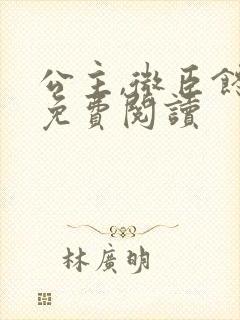 公主,微臣餓
免費閱讀
林廣明